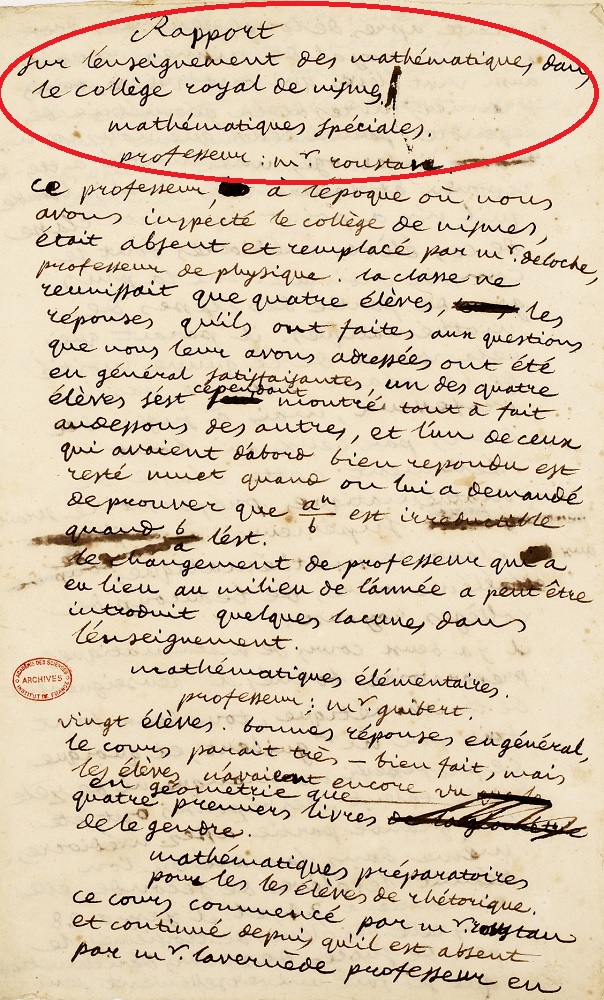 Rapport
sur l'enseignement des mathématiques, dans
le collège royal de nismes
mathématiques spéciales.
professeur : mr. roustan.
ce professeur, à l'époque où nous
avons inspécté le collège de nismes,
était absent et remplacé par mr. deloche,
professeur de physique. la classe ne
reunissait que quatre élèves, les
réponses qu'ils ont faites aux questions
que nous leur avons adressées ont été
en général satisfaisantes, un des quatre
élèves s'est cépendant montré tout à fait
audessous des autres, et l'un de ceux
qui avaient d'abord bien repondu est
resté muet quand on lui a demandé
de prouver que a^n/b est irreductible
quand b/a l'est.
le changement de professeur qui a
eu lieu au milieu de l'année a peut être
introduit quelques lacunes dans
l'énseignement.
ACADÉMIE DES SCIENCES
ARCHIVES
INSTITUT DE FRANCE
mathématiques élémentaires.
professeur : mr. guibert.
vingt élèves. bonnes réponses en général,
le cours parait très-bien fait, mais
les élèves n'avaient encore vu
en géometrie que
quatre premiers livres
de le gendre.
mathématiques préparatoires
pour les les élèves de rhétorique.
ce cours commencé par mr. roustan
et continué depuis qu'il est absent
par mr. lavernède professeur en